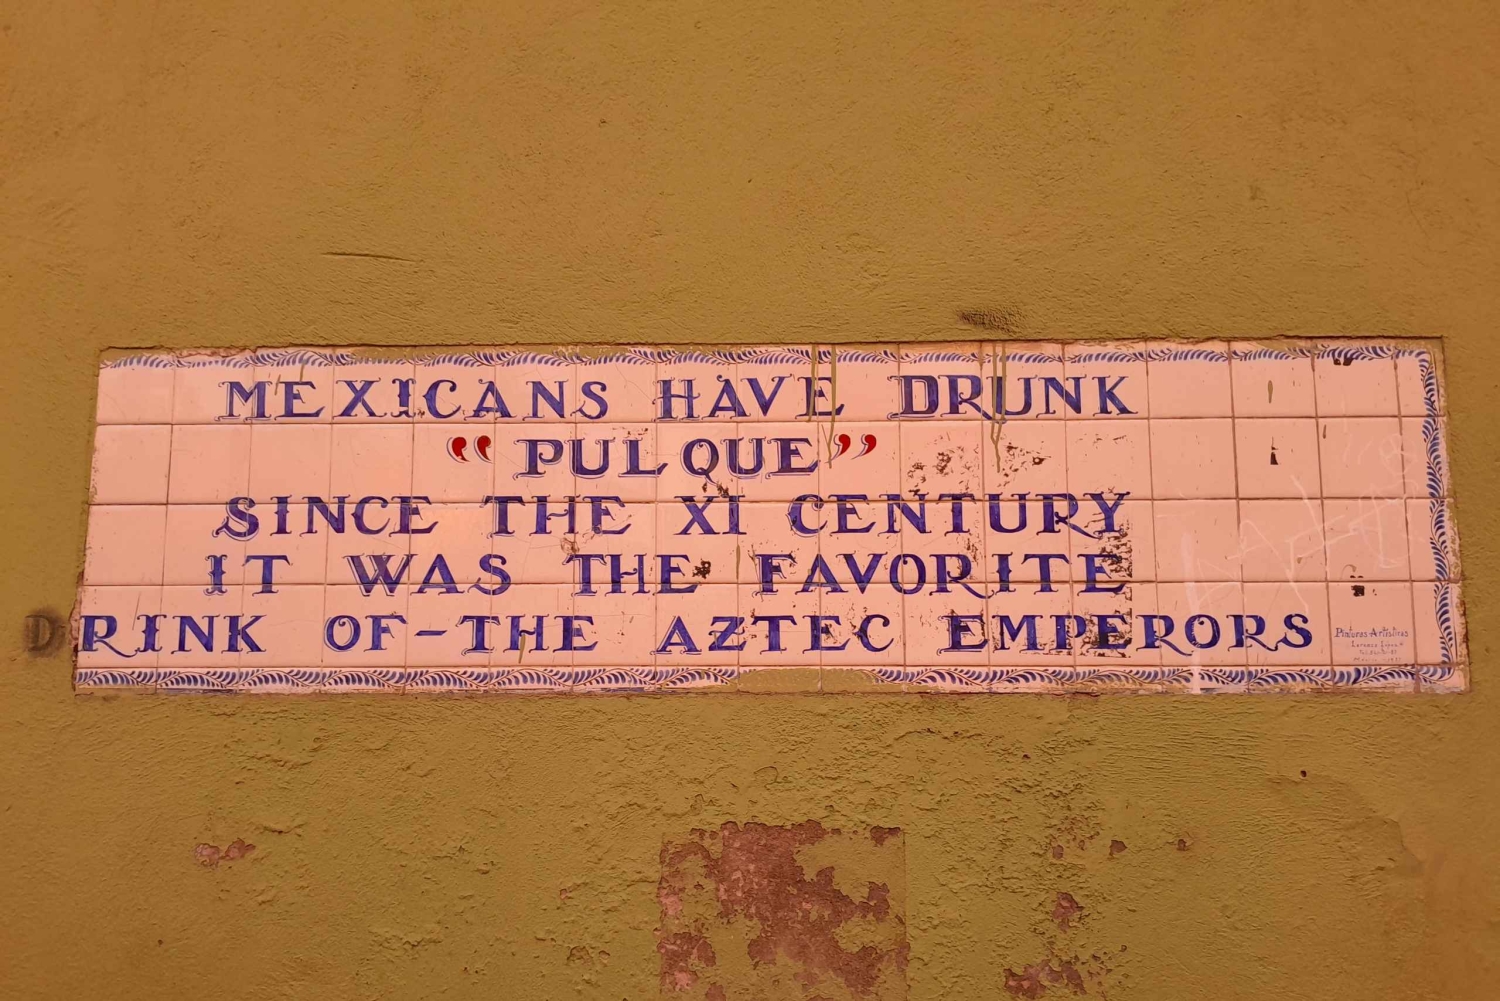 MEXICANS HAVE DRUNK
“PULQUE”
SINCE THE XI CENTURY
IT WAS THE FAVORITE
DRINK OF-THE AZTEC EMPERORS
Pinturas Artisticas